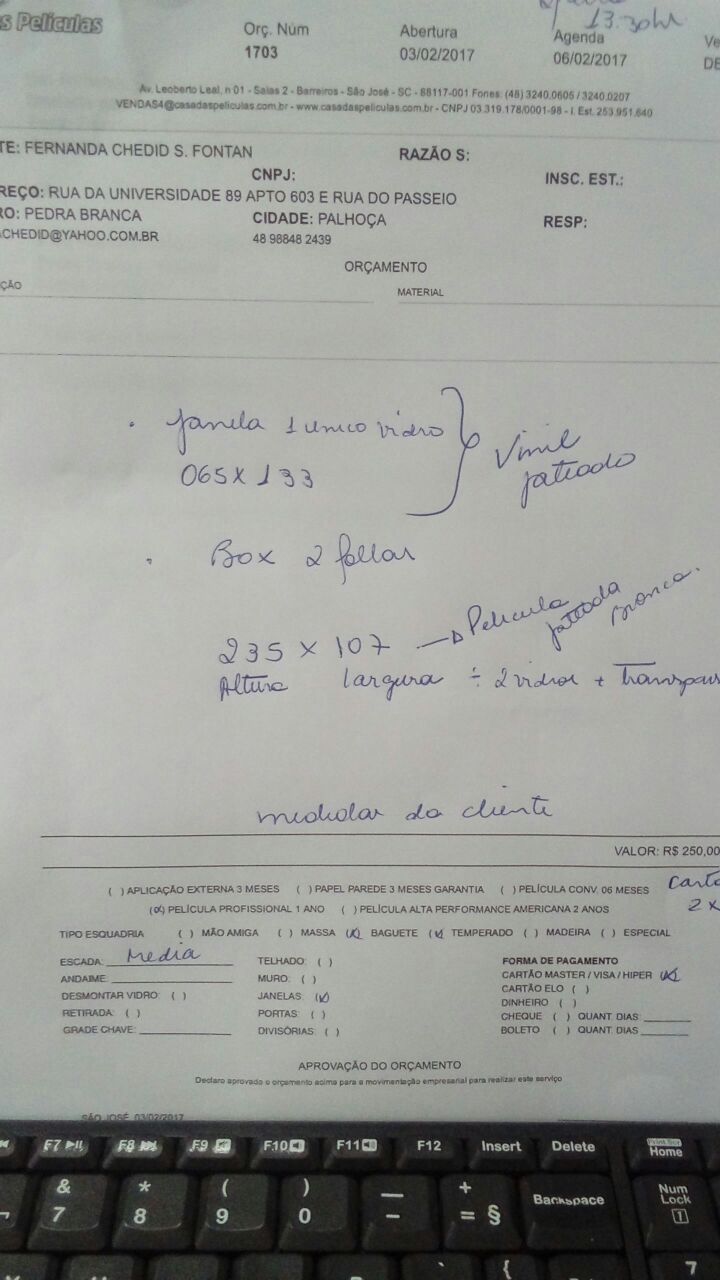 s Películas
13:30hr
Orç. Núm
1703
Abertura
03/02/2017
Agenda
06/02/2017
Ve
DE
Av. Leoberto Leal, n 01 - Salas 2 - Barreiros - São José - SC - 88117-001 Fones: (48) 3240.0605 / 3240.0207
VENDAS4@casadaspeliculas.com.br - www.casadaspeliculas.com.br - CNPJ 03.319.178/0001-98 - I. Est. 253.951.640
TE: FERNANDA CHEDID S. FONTAN RAZÃO S:
CNPJ: INSC. EST.:
REÇO: RUA DA UNIVERSIDADE 89 APTO 603 E RUA DO PASSEIO
RO: PEDRA BRANCA CIDADE: PALHOÇA RESP:
ACHEDID@YAHOO.COM.BR 48 98848 2439
ORÇAMENTO
ÇÃO MATERIAL
Janela 1 unico vidro
065 x 133
Vinil
jateado
Box 2 follas
235 x 107 → Pelicula
jateada
Branca.
Altura largura ÷ 2 vidros + Transpas
medidas da cliente
VALOR: R$ 250,00
( ) APLICAÇÃO EXTERNA 3 MESES ( ) PAPEL PAREDE 3 MESES GARANTIA ( ) PELÍCULA CONV. 06 MESES
Carto
2x
(x) PELÍCULA PROFISSIONAL 1 ANO ( ) PELÍCULA ALTA PERFORMANCE AMERICANA 2 ANOS
TIPO ESQUADRIA ( ) MÃO AMIGA ( ) MASSA (x) BAGUETE (x) TEMPERADO ( ) MADEIRA ( ) ESPECIAL
ESCADA: Media TELHADO: ( ) FORMA DE PAGAMENTO
ANDAIME: MURO: ( ) CARTÃO MASTER / VISA / HIPER (x)
DESMONTAR VIDRO: ( ) JANELAS: (x) CARTÃO ELO ( )
RETIRADA: ( ) PORTAS: ( ) DINHEIRO ( )
GRADE CHAVE: DIVISÓRIAS: ( ) CHEQUE ( ) QUANT. DIAS:
BOLETO ( ) QUANT. DIAS
APROVAÇÃO DO ORÇAMENTO
Declaro aprovado o orçamento acima para a movimentação empresarial para realizar este serviço
SÃO JOSÉ, 03/02/2017
F7 F8 F9 F10 F11 F12 Insert Delete Print Scr Home
& * ( ) — + Backspace Num Lock
7 8 9 0 - = § 1
` { 7